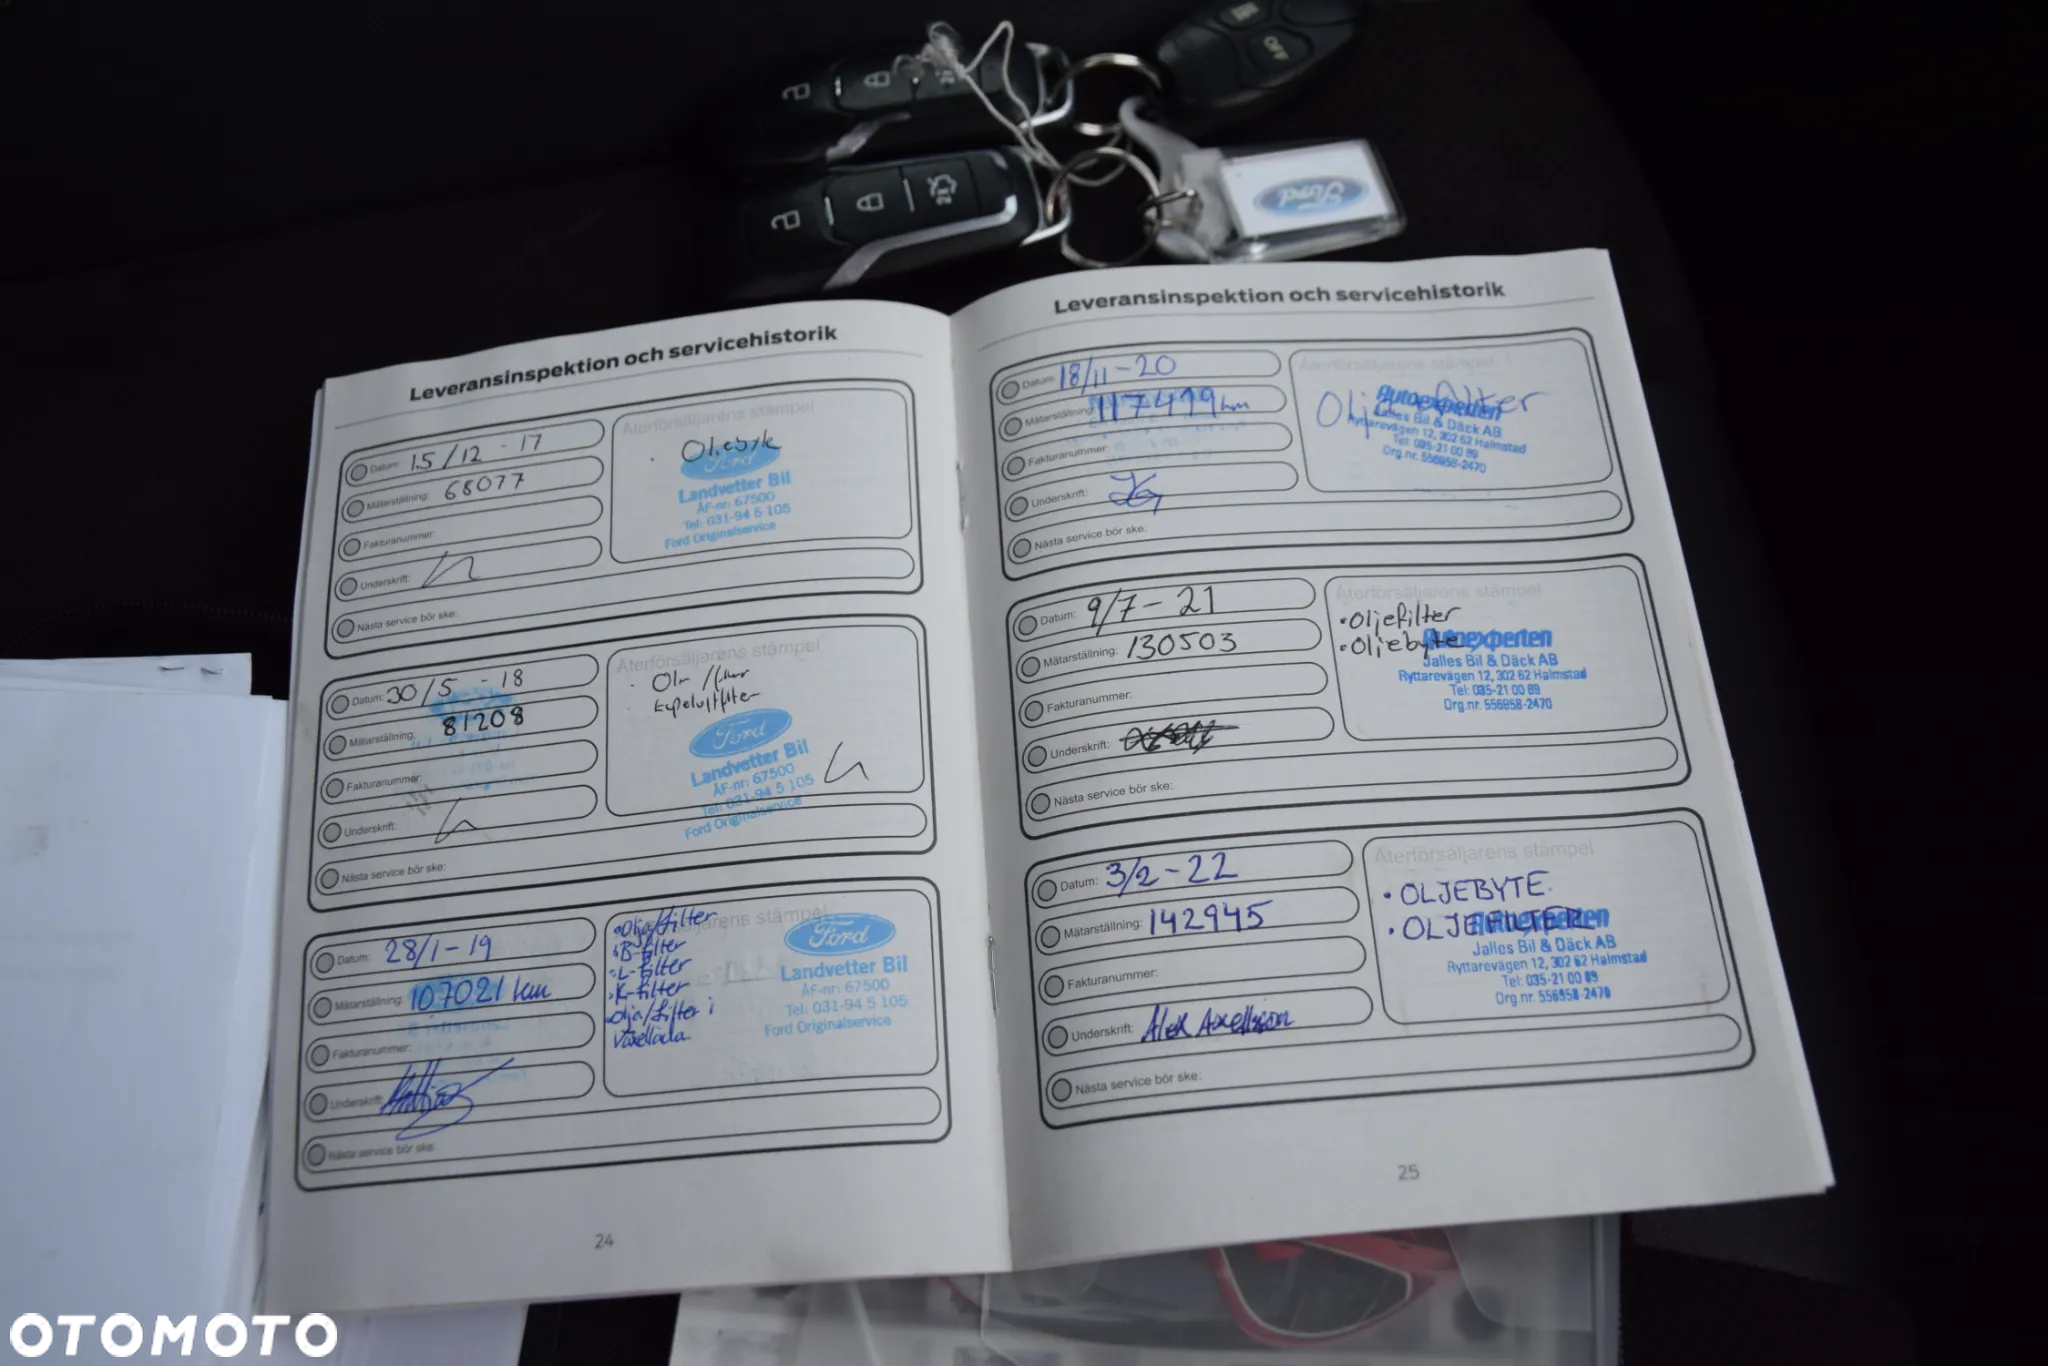 OFF
Ford
Leveransinspektion och servicehistorik
Datum: 15/12 - 17
Mätarställning: 68077
Fakturanummer:
Underskrift:
Nästa service bör ske:
Återförsäljarens stämpel
Oljebyte
Ford
Landvetter Bil
ÅF-nr: 67500
Tel: 031-94 5 105
Ford Originalservice
Datum: 30/5 - 18
Mätarställning: 81208
Fakturanummer:
Underskrift:
Nästa service bör ske:
Återförsäljarens stämpel
Ford
Landvetter Bil
ÅF-nr: 67500
Tel: 031-94 5 105
Ford Originalservice
Datum: 28/1-19
Mätarställning: 107021 km
Fakturanummer:
Underskrift:
Nästa service bör ske:
Återförsäljarens stämpel
• Olja/filter
• B-filter
• L-filter
• K-filter
• Olja/filter i
Växellåda
Ford
Landvetter Bil
ÅF-nr: 67500
Tel: 031-94 5 105
Ford Originalservice
24
Leveransinspektion och servicehistorik
Datum: 18/11-20
Mätarställning: 117419 km
Fakturanummer:
Underskrift:
Nästa service bör ske:
Återförsäljarens stämpel
Autoexperten
Jalles Bil & Däck AB
Ryttarevägen 12, 302 62 Halmstad
Tel: 035-21 00 89
Org.nr. 556958-2470
Datum: 9/7-21
Mätarställning: 130503
Fakturanummer:
Underskrift:
Nästa service bör ske:
Återförsäljarens stämpel
• Oljefilter
• Oljebyte
Autoexperten
Jalles Bil & Däck AB
Ryttarevägen 12, 302 62 Halmstad
Tel: 035-21 00 89
Org.nr. 556958-2470
Datum: 3/2-22
Mätarställning: 142945
Fakturanummer:
Underskrift: Alex Axellsson
Nästa service bör ske:
Återförsäljarens stämpel
• OLJEBYTE
• OLJEFILTER
Autoexperten
Jalles Bil & Däck AB
Ryttarevägen 12, 302 62 Halmstad
Tel: 035-21 00 89
Org.nr. 556958-2470
25
OTOMOTO